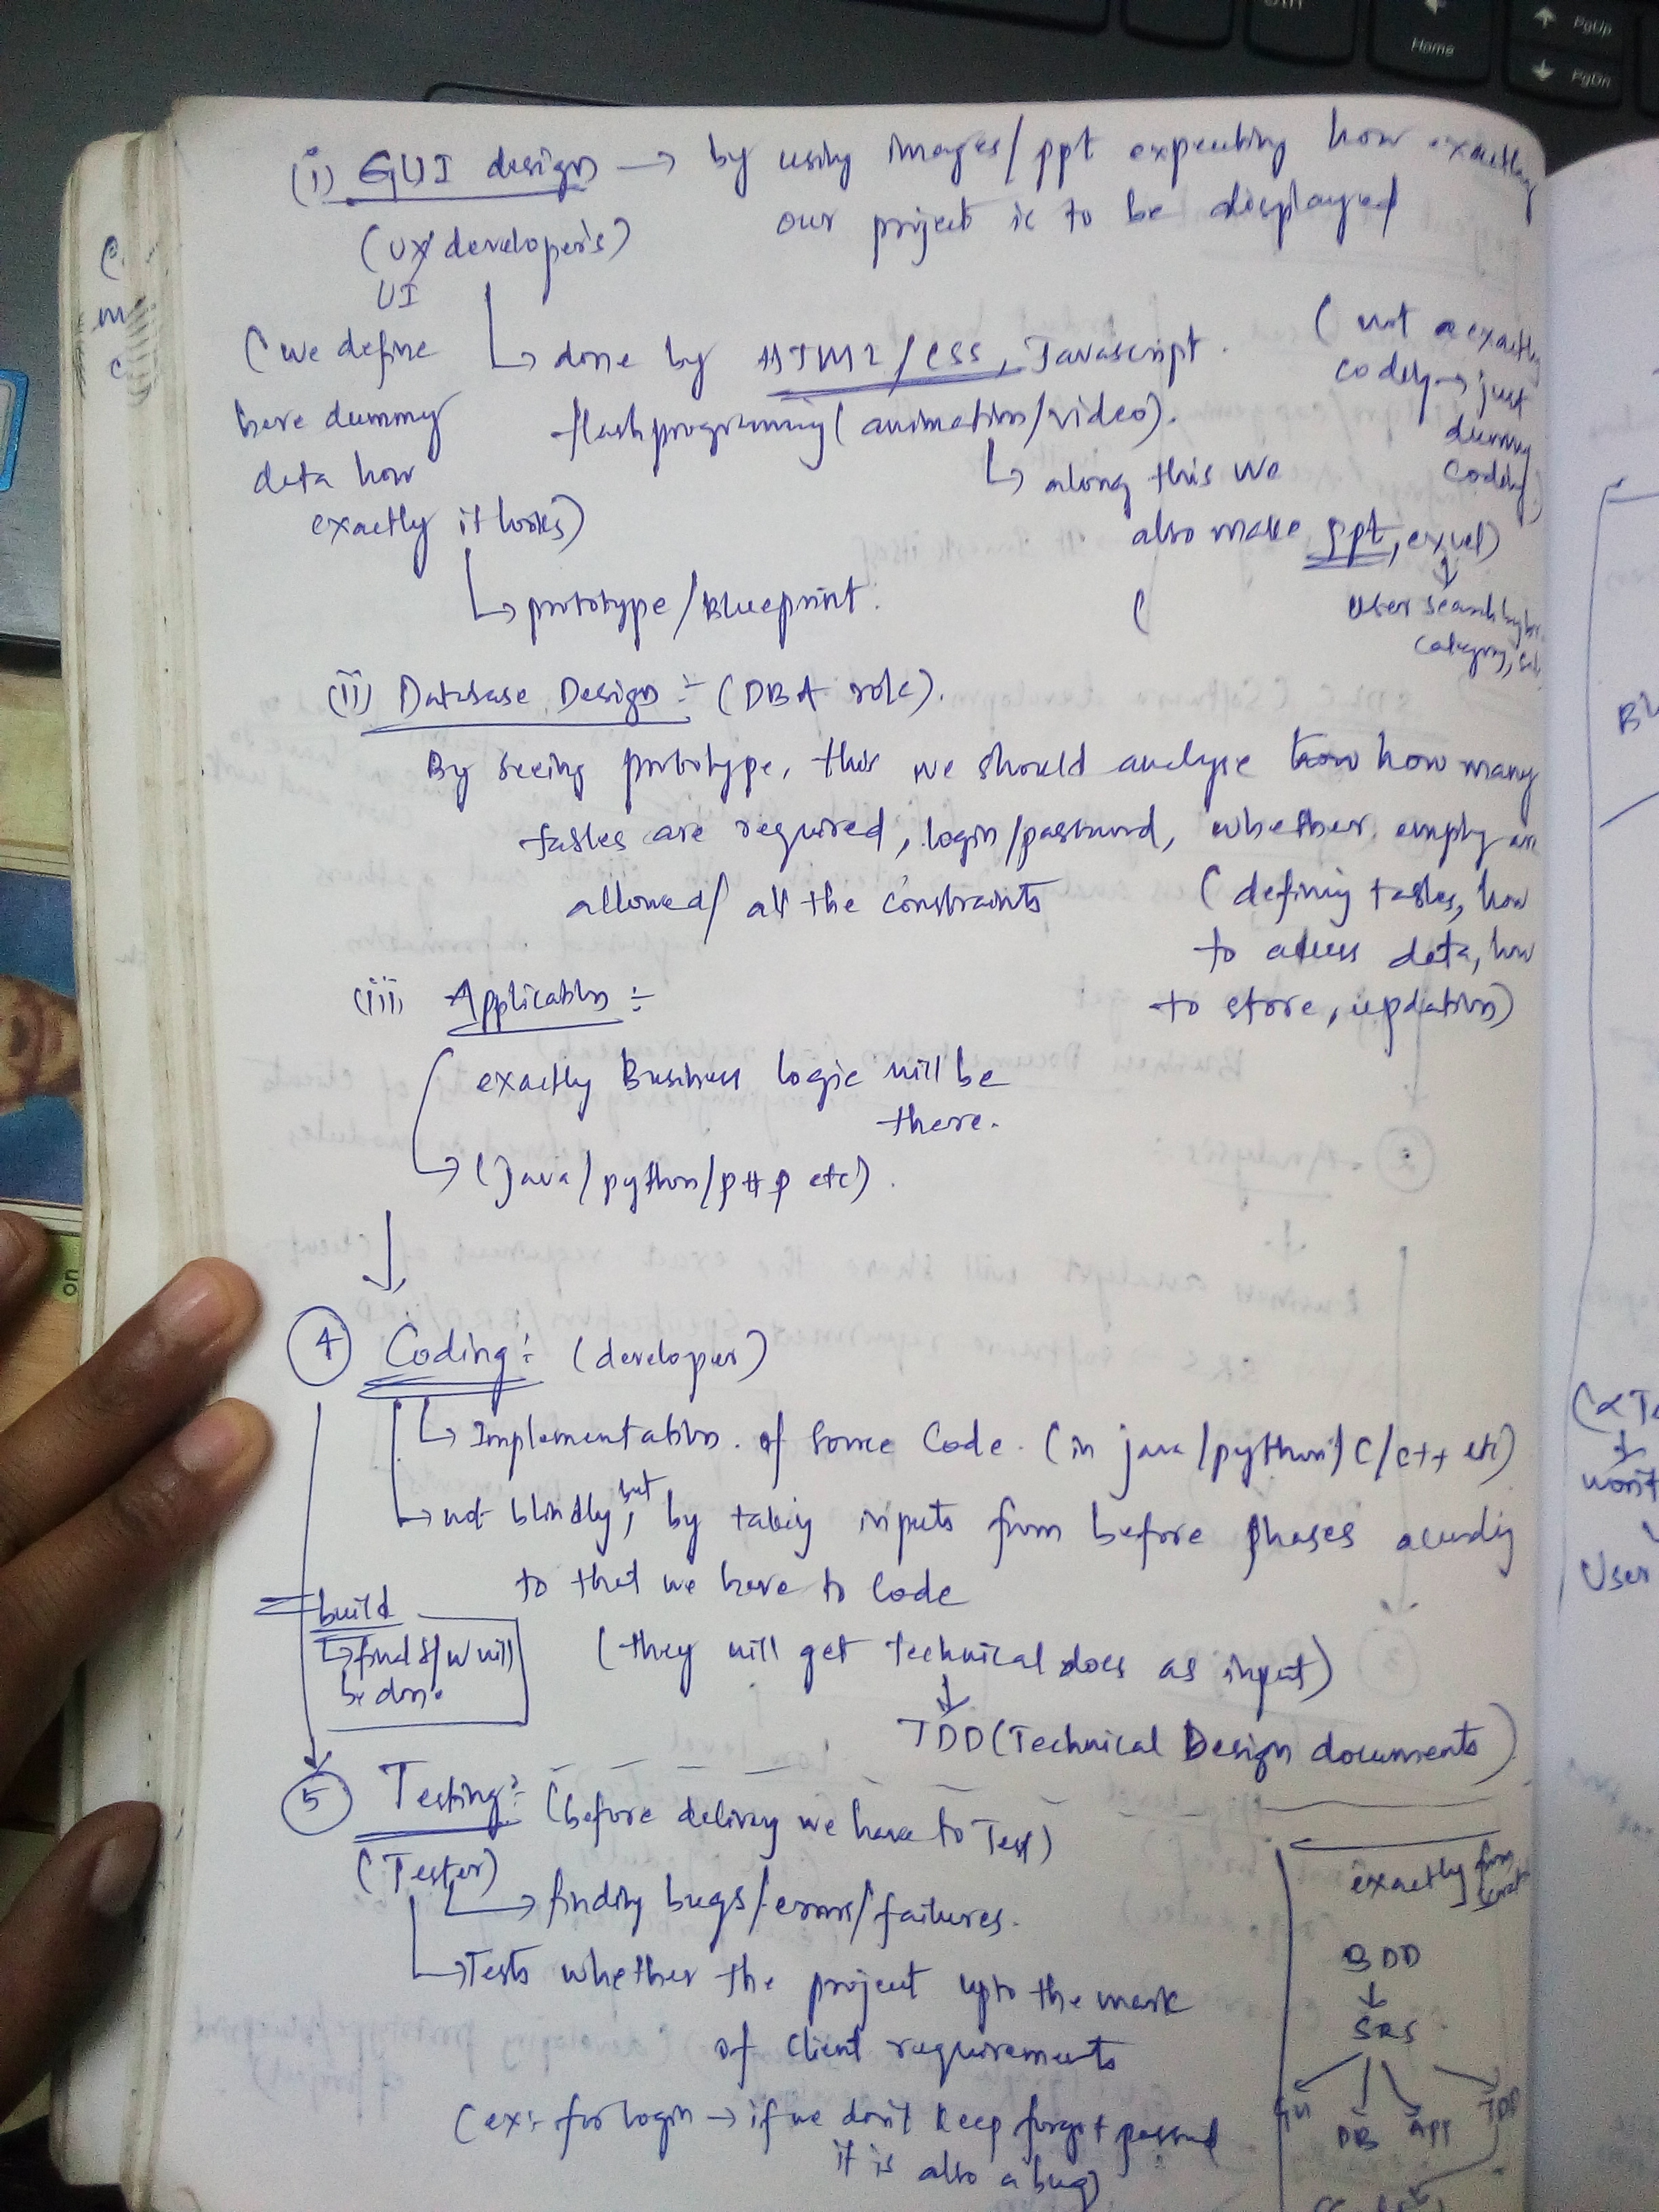 (i) GUI design → by using images/ppt expecting how exactly
our project is to be displayed
(UX/developer's)
UI
(we define
here dummy
data how
exactly it looks)
↳ done by HTML/CSS, Javascript.
flash programming (animation/video).
(not exactly
coding → just
dummy
coding)
↳ along this we
also make ppt, excel)
↓
user search by
category,
↳ prototype/Blueprint.
(
(ii) Database Design :- (DBA role).
By seeing prototype, this we should analyse how many
tables are required, login/password, whether empty are
allowed/ all the constraints
(defining tables, how
to access data, how
to store, updation)
(iii) Application :-
exactly Business logic will be
there.
→ (java/python/PHP etc).
↓
④ Coding :- (developer)
↳ Implementation. of source code. (in java/python/C/C++ etc)
↳ not blindly, but by taking inputs from before phases according
to that we have to code
build
↳ final s/w will
be done
(they will get technical docs as input)
↓
TDD (Technical Design documents)
⑤ Testing :- (before delivery we have to Test)
(Tester)
↳ finding bugs/errors/failures.
↳ Tests whether the project upto the mark
of client requirements
(ex:- for login → if we don't keep forgot password
it is also a bug)
exactly from
BDD
↓
SRS
DB
APP
TDD
Home
PgUp
PgDn
on
User